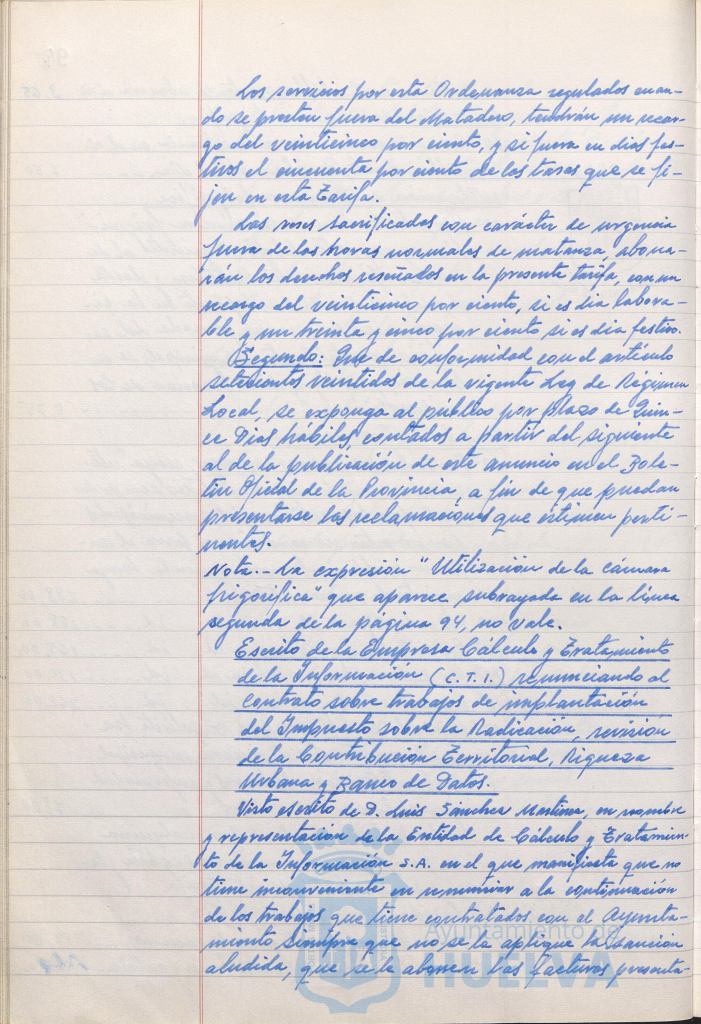 Los servicios por esta Ordenanza regulados cuan-
do se presten fuera del Matadero, tendrán un recar-
go del veinticinco por ciento, y si fuera en días fes-
tivos el cincuenta por ciento de las tasas que se fi-
jen en esta Tarifa.
Las reses sacrificadas con carácter de urgencia
fuera de las horas normales de matanza, abona-
rán los derechos reseñados en la presente tarifa, con un
recargo del veinticinco por ciento, si es día labora-
ble y un treinta y cinco por ciento si es día festivo.
Segundo: Que de conformidad con el artículo
setecientos veintidos de la vigente Ley de Régimen
Local, se exponga al público por plazo de Quin-
ce Días hábiles, contados a partir del siguiente
al de la publicación de este anuncio en el Bole-
tín Oficial de la Provincia, a fin de que puedan
presentarse las reclamaciones que estimen perti-
nentes.
Nota.- La expresión "Utilización de la cámara
frigorífica" que aparece subrayada en la línea
segunda de la página 94, no vale.
Escrito de la Empresa Cálculo y Tratamiento
de la Información (C.T.I.) renunciando al
contrato sobre trabajos de implantación
del Impuesto sobre la Radicación, revisión
de la Contribución Territorial, Riqueza
Urbana y Banco de Datos.
Visto escrito de D. Luis Sánchez Martínez, en nombre
y representación de la Entidad de Cálculo y Tratamien-
to de la Información S.A. en el que manifiesta que no
tiene inconveniente en renunciar a la continuación
de los trabajos que tiene contratados con el Ayunta-
miento siempre que no se la aplique la sanción
aludida, que se le abonen las facturas presenta-
Ayuntamiento de
HUELVA